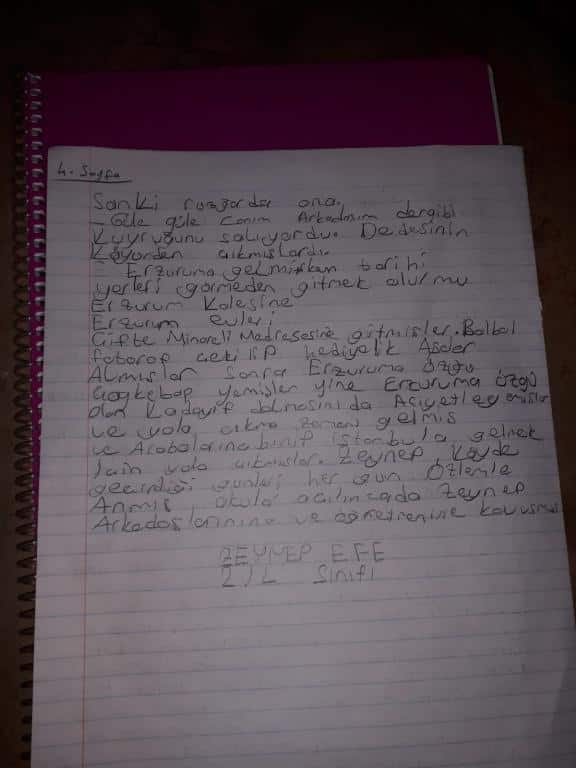 4. Sayfa
Sanki rüzgarda ona,
- Güle güle Canım Arkadaşım dergibi
Kuyruğunu salıyordu. Dedesinin
Köyünden çıkmışlardı.
- Erzuruma gelmişken tarihi
yerleri görmeden gitmek olurmu
Erzurum Kalesine
Erzurum evleri
Çifte Minareli Medresesine gitmişler. Bolbol
fotoraf çekilip hediyelik
Almışlar Sonra Erzuruma özgü
Cağkebap yemişler yine Erzuruma özgü
olan Kadayıf dolmasını da
ve yola çıkma zamanı gelmiş
ve Arabalarına binip istanbula gelmek
için yola çıkmışlar. Zeynep, köyde
geçirdiği günleri her gün Özlemle
Anmış, okula açılıncada Zeynep
Arkadaşlarınına ve öğretmenine kavuşmuş
ZEYNEP EFE
2/L Sınıfı